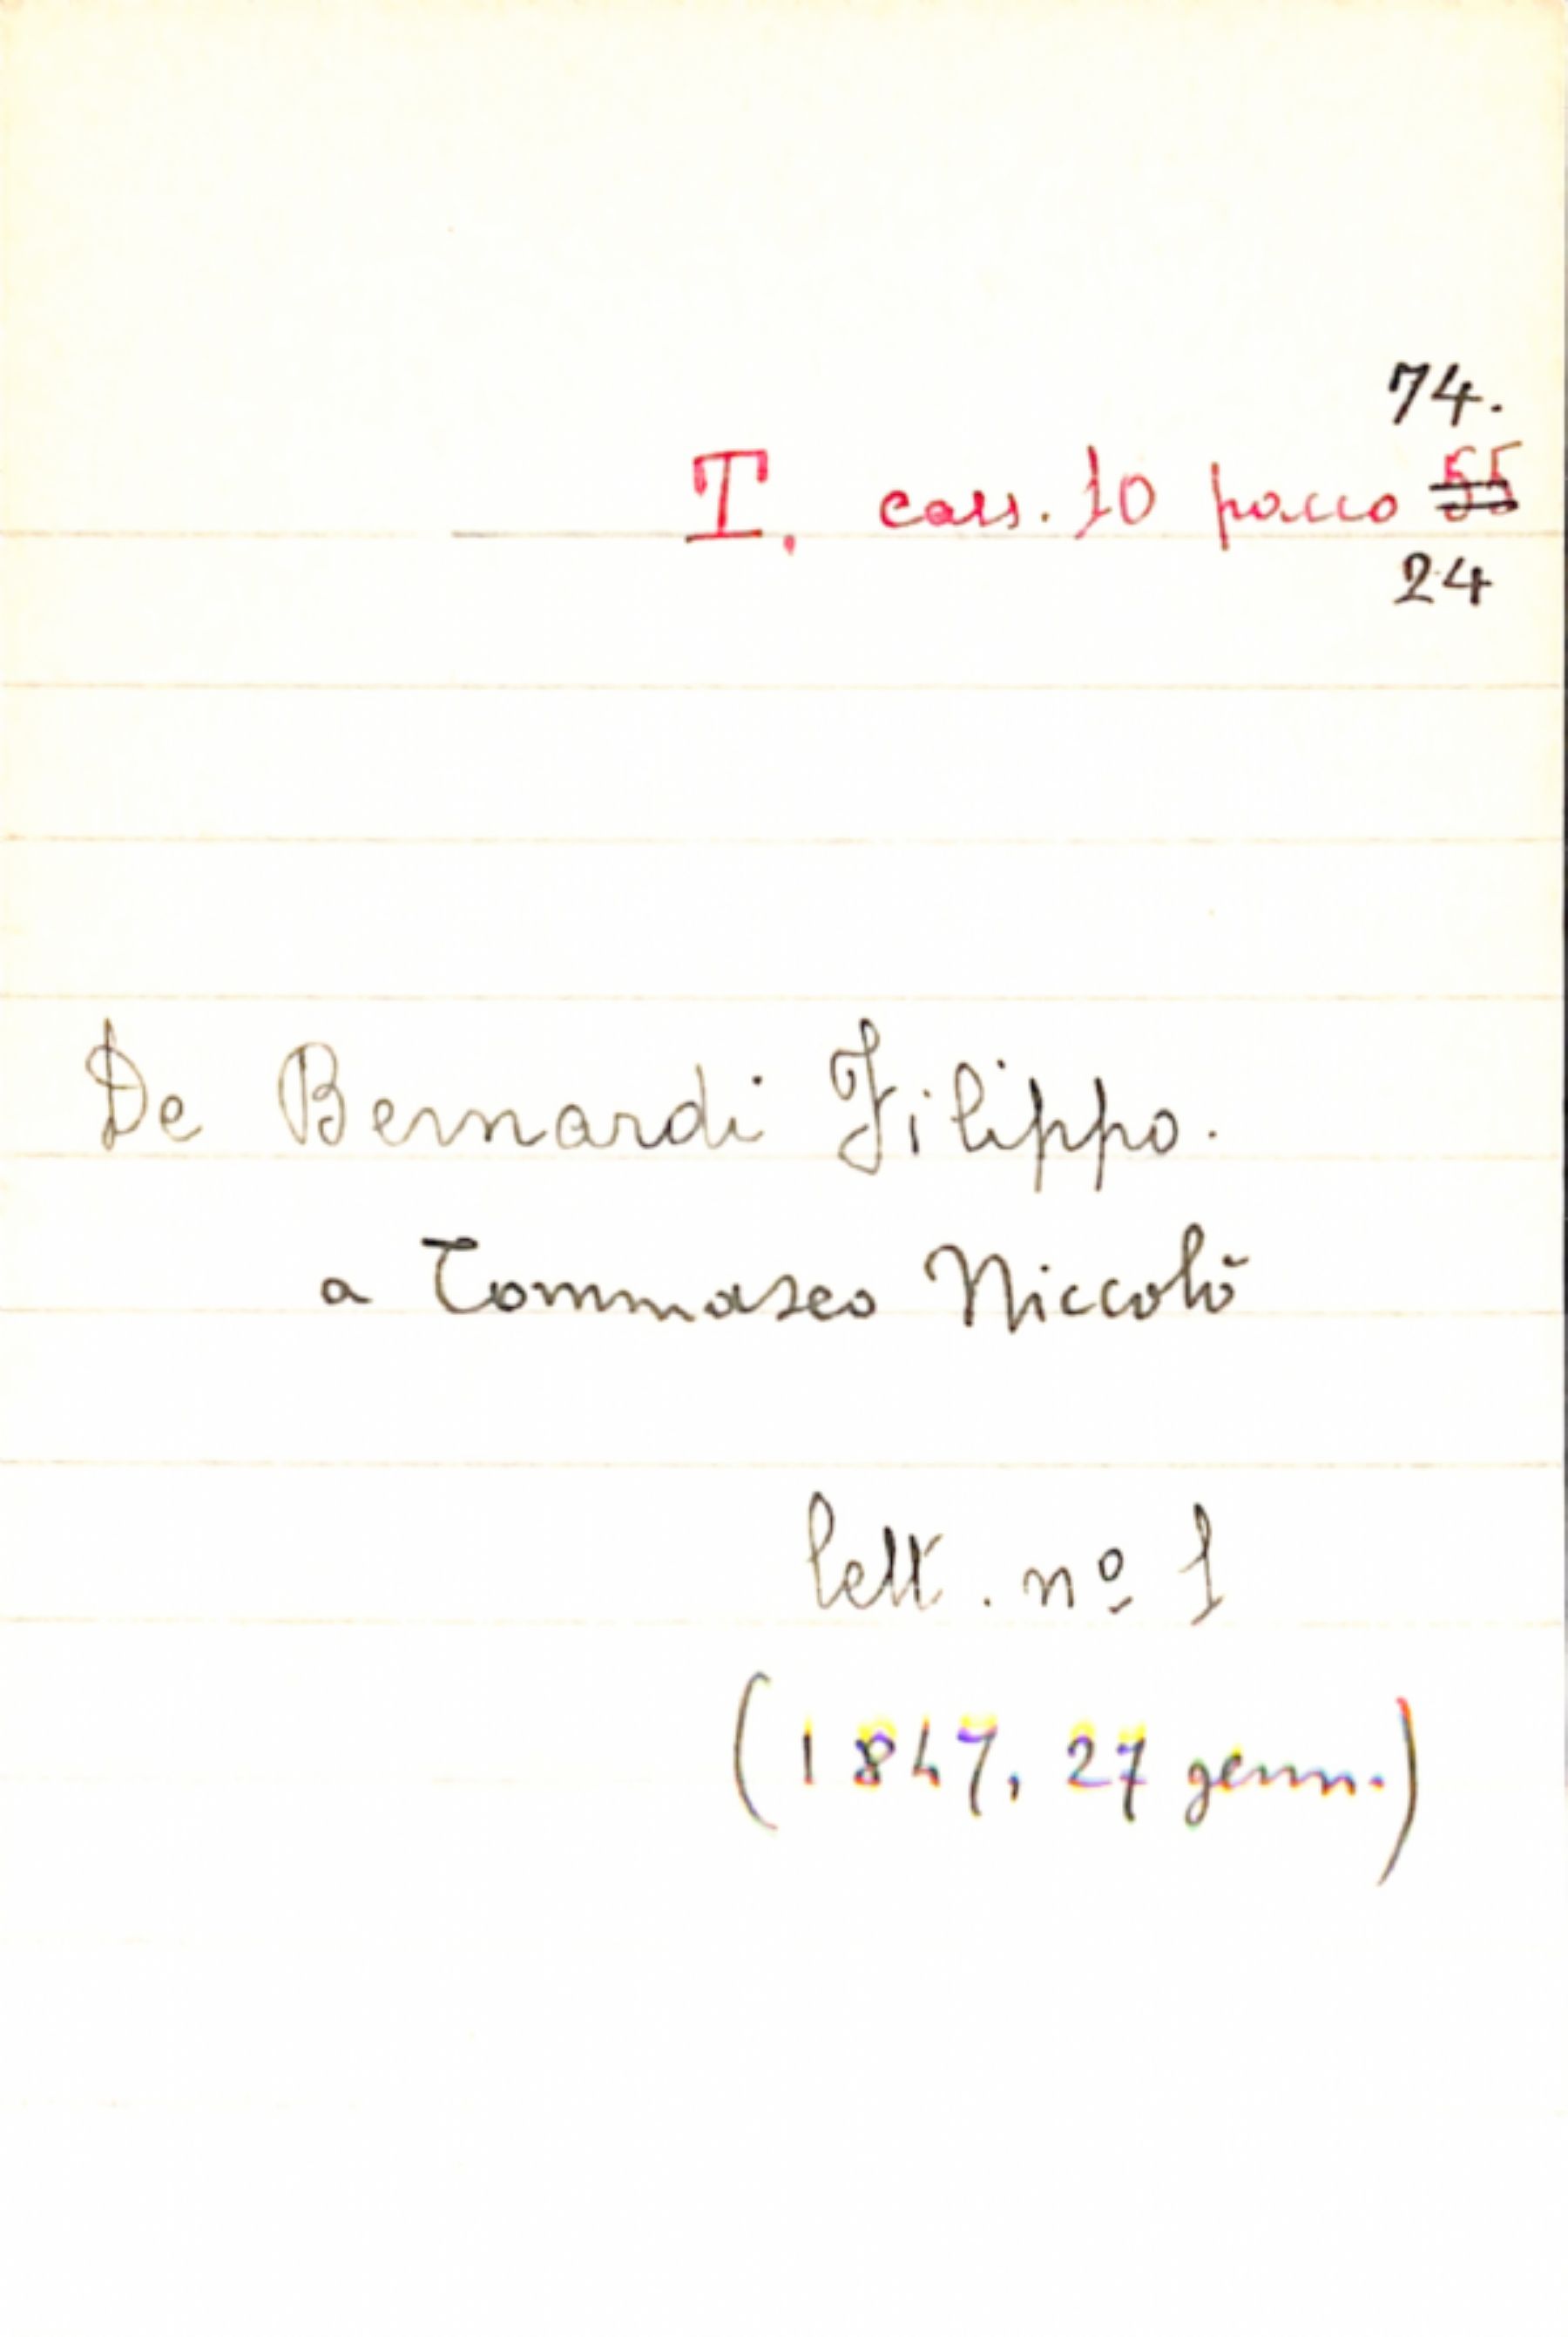 74.
T. cass. 10 pacco 55
24
De Bernardi Filippo.
a Tommaseo Niccolò
lett. nº 1
(1847, 27 genn.)